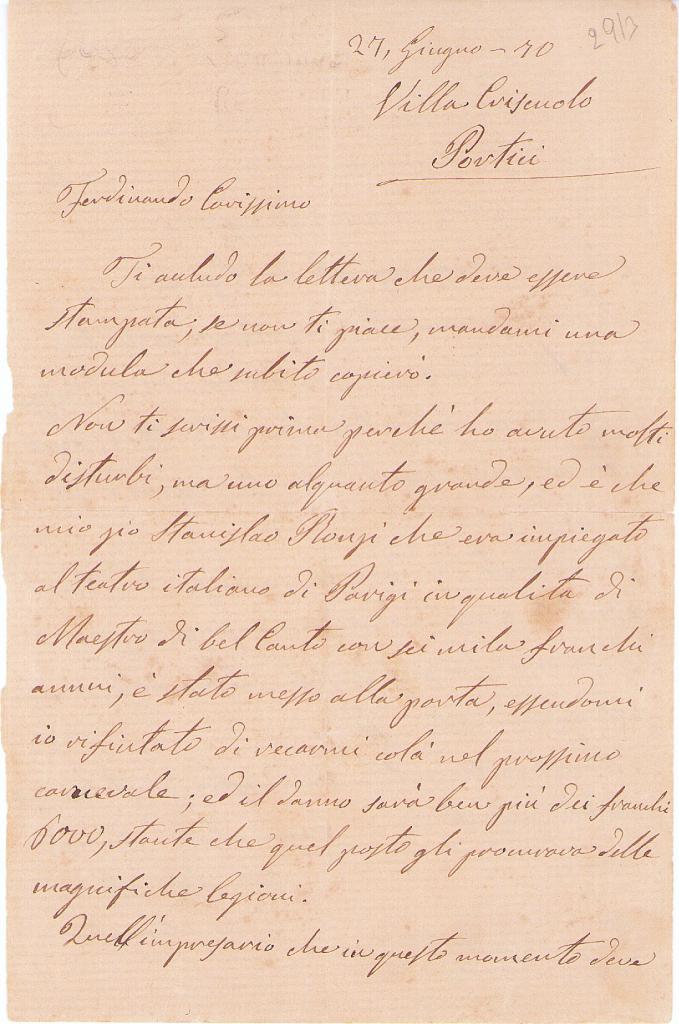 29/3
27, Giugno - 70
Villa Criscuolo
Portici
Ferdinando Carissimo
Ti acludo la lettera che deve essere
stampata, se non ti piace, mandami una
modula che subito copierò.
Non ti scrissi prima perché ho avuto molti
disturbi, ma uno alquanto grande, ed è che
mio zio Stanislao Ronzi che era impiegato
al teatro italiano di Parigi in qualità di
Maestro di bel Canto con sei mila franchi
annui, è stato messo alla porta, essendomi
io rifiutato di recarmi colà nel prossimo
carnevale; ed il danno sarà ben più dei franchi
6000, stante che quel posto gli procurava delle
magnifiche lezioni.
Quell'impresario che in questo momento deve